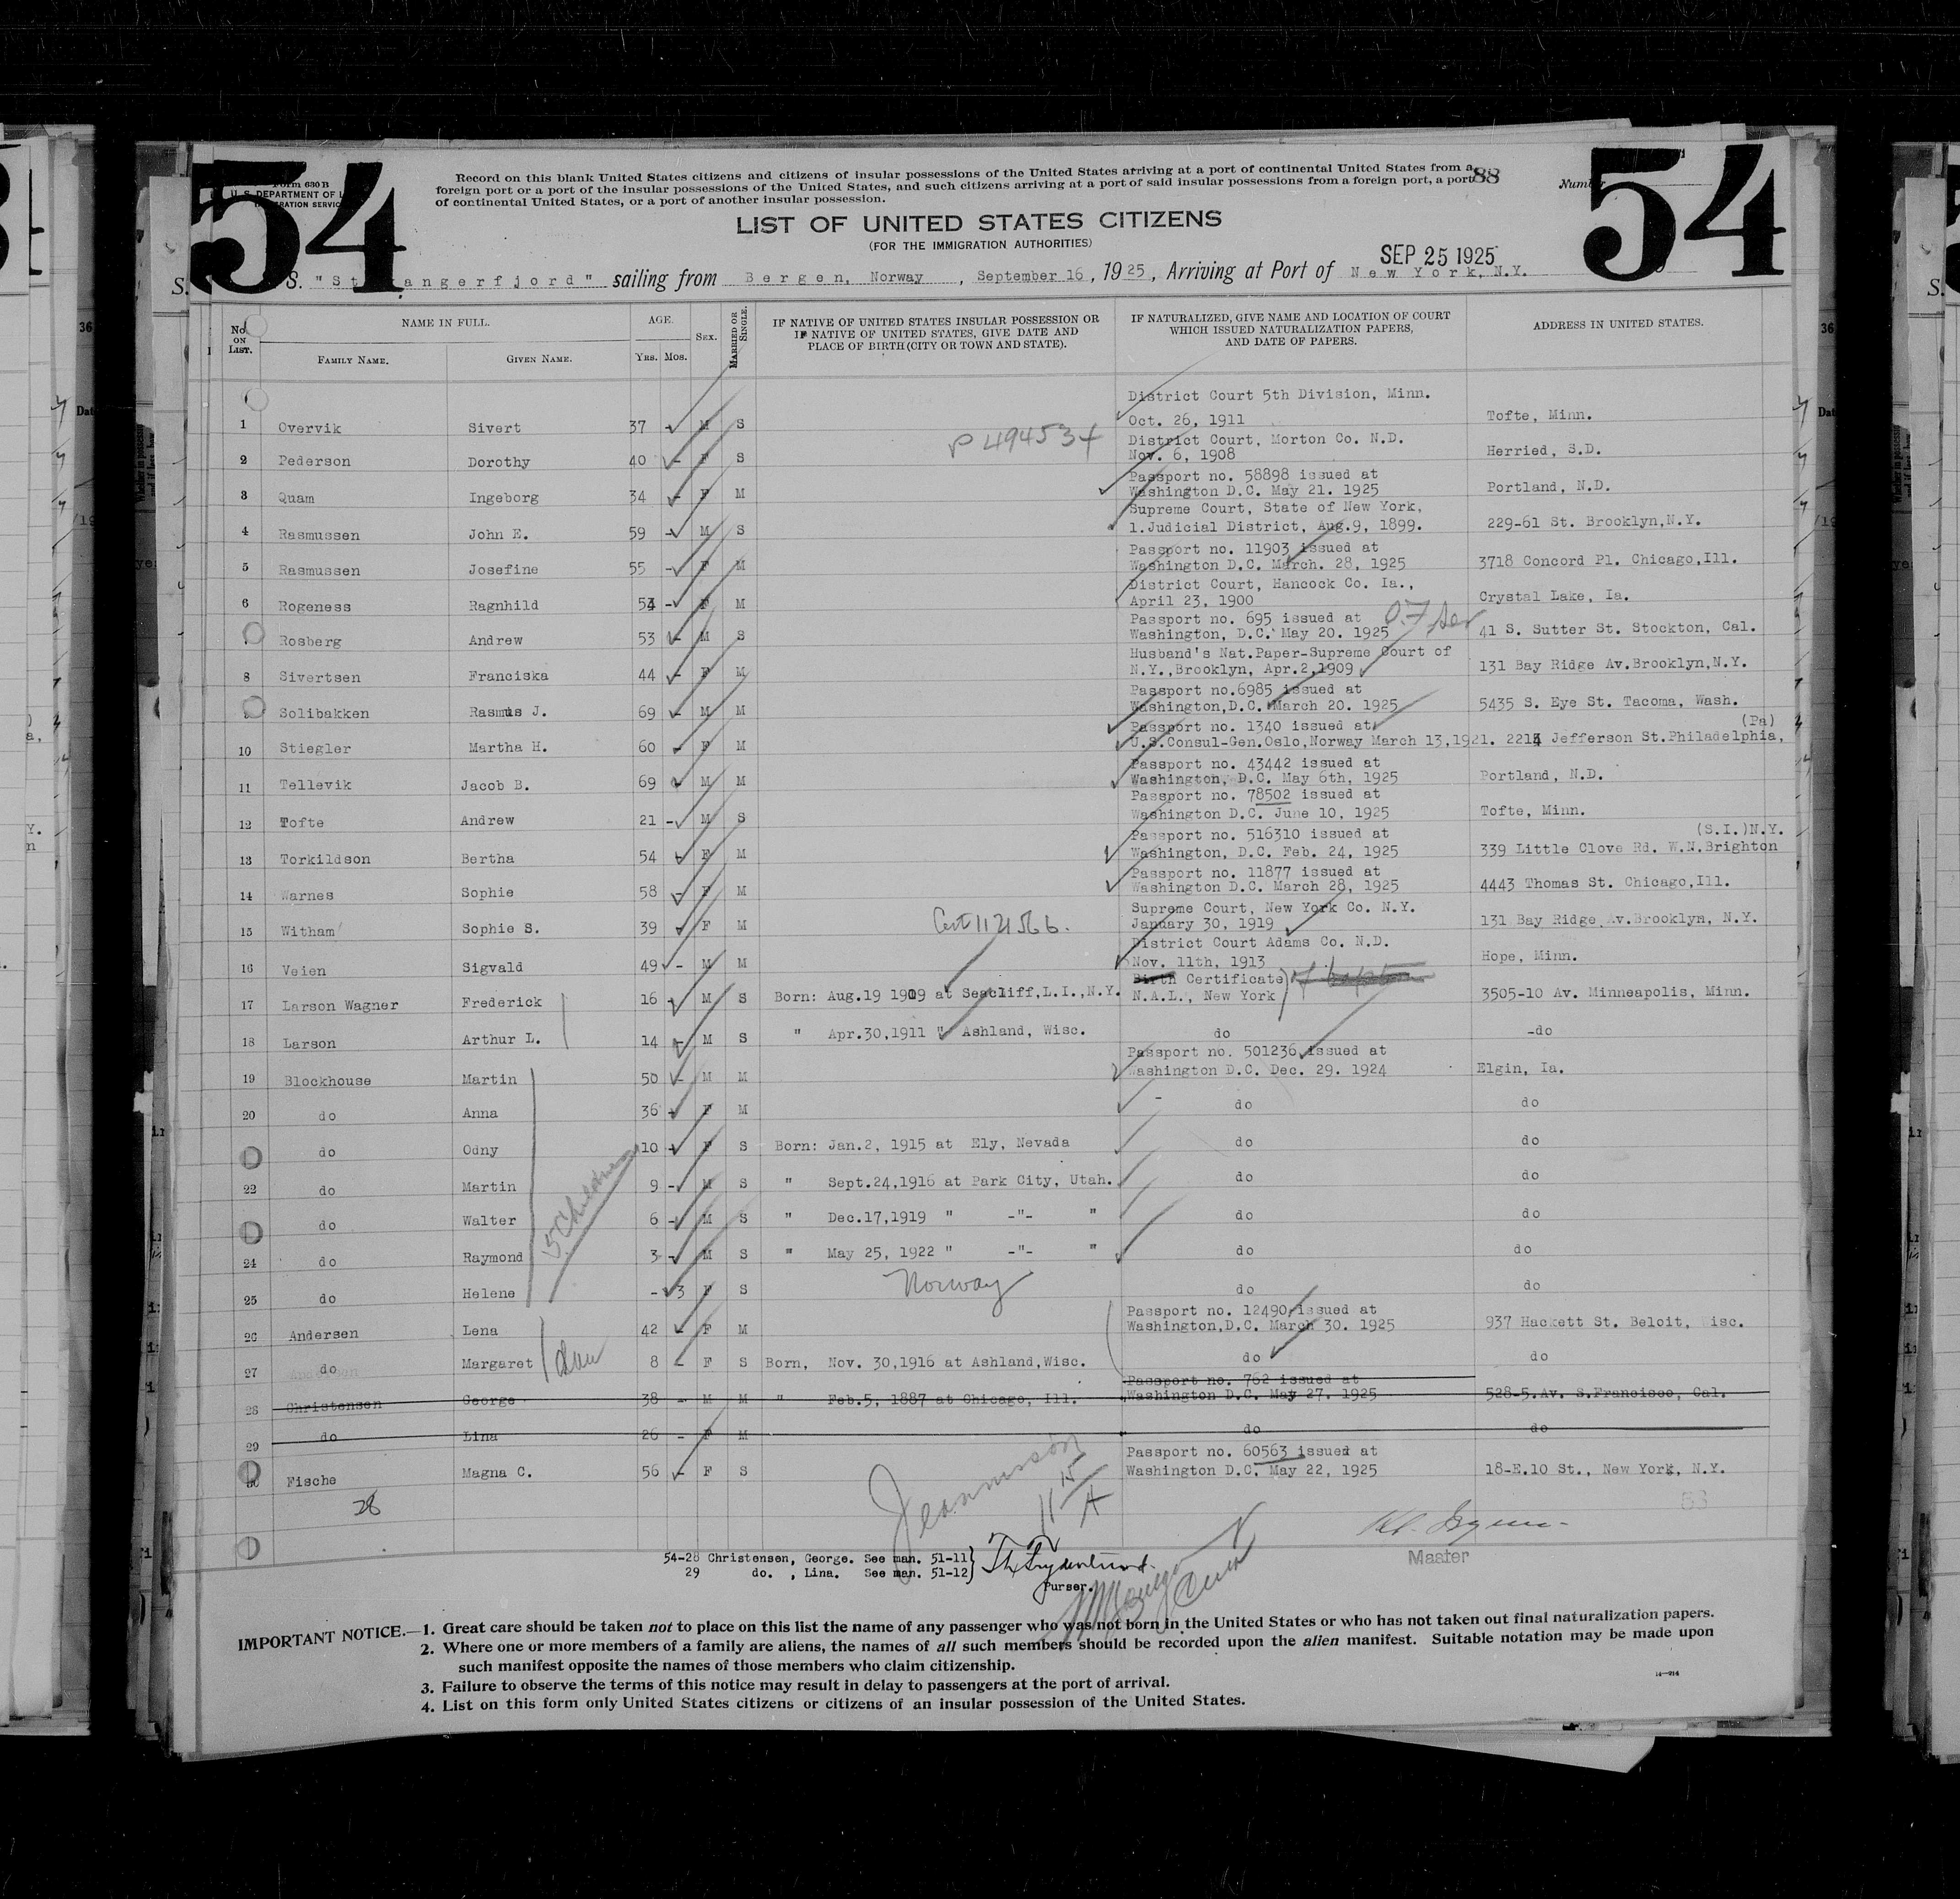 54
54
Form 630 B
U. S. DEPARTMENT OF
IMMIGRATION SERVICE
Record on this blank United States citizens and citizens of insular possessions of the United States arriving at a port of continental United States from a
foreign port or a port of the insular possessions of the United States, and such citizens arriving at a port of said insular possessions from a foreign port, a port
of continental United States, or a port of another insular possession.
88
Number
LIST OF UNITED STATES CITIZENS
(FOR THE IMMIGRATION AUTHORITIES)
SEP 25 1925
S. "St angerfjord" sailing from Bergen, Norway, September 16, 1925, Arriving at Port of New York, N.Y.
No. ON LIST. NAME IN FULL. AGE. SEX. MARRIED OR SINGLE. IF NATIVE OF UNITED STATES INSULAR POSSESSION OR IF NATIVE OF UNITED STATES, GIVE DATE AND PLACE OF BIRTH (CITY OR TOWN AND STATE). IF NATURALIZED, GIVE NAME AND LOCATION OF COURT WHICH ISSUED NATURALIZATION PAPERS, AND DATE OF PAPERS. ADDRESS IN UNITED STATES.
FAMILY NAME. GIVEN NAME. YRS. MOS.
District Court 5th Division, Minn.
1 Overvik Sivert 37 M S Oct. 26, 1911 Tofte, Minn.
P 494534 District Court, Morton Co. N.D.
2 Pederson Dorothy 40 - F S Nov. 6, 1908 Herried, S.D.
Passport no. 58898 issued at
3 Quam Ingeborg 34 - F M Washington D.C. May 21. 1925 Portland, N.D.
Supreme Court, State of New York,
4 Rasmussen John E. 59 - M S 1.Judicial District, Aug.9, 1899. 229-61 St. Brooklyn,N.Y.
Passport no. 11903 issued at
5 Rasmussen Josefine 55 - F M Washington D.C. March. 28, 1925 3718 Concord Pl. Chicago,Ill.
District Court, Hancock Co. Ia.,
6 Rogeness Ragnhild 54 - F M April 23, 1900 Crystal Lake, Ia.
Passport no. 695 issued at
Rosberg Andrew 53 - M S Washington, D.C. May 20. 1925 41 S. Sutter St. Stockton, Cal.
Husband's Nat.Paper-Supreme Court of
8 Sivertsen Franciska 44 - F M N.Y.,Brooklyn, Apr.2,1909 131 Bay Ridge Av.Brooklyn,N.Y.
Passport no.6985 issued at
Solibakken Rasmus J. 69 - M M Washington,D.C. March 20. 1925 5435 S. Eye St. Tacoma, Wash.
Passport no. 1340 issued at (Pa)
10 Stiegler Martha H. 60 - F M U.S.Consul-Gen.Oslo,Norway March 13,1921. 2214 Jefferson St.Philadelphia,
Passport no. 43442 issued at
11 Tellevik Jacob B. 69 M M Washington, D.C. May 6th, 1925 Portland, N.D.
Passport no. 78502 issued at
12 Tofte Andrew 21 - M S Washington D.C. June 10, 1925 Tofte, Minn.
Passport no. 516310 issued at (S.I.)N.Y.
13 Torkildson Bertha 54 - F M Washington, D.C. Feb. 24, 1925 339 Little Clove Rd. W.N.Brighton
Passport no. 11877 issued at
14 Warnes Sophie 58 - F M Washington D.C. March 28, 1925 4443 Thomas St. Chicago,Ill.
Supreme Court, New York Co. N.Y.
15 Witham Sophie S. 39 F M January 30, 1919 131 Bay Ridge Av.Brooklyn, N.Y.
District Court Adams Co. N.D.
16 Veien Sigvald 49 - M M Nov. 11th, 1913 Hope, Minn.
Birth Certificate
17 Larson Wagner Frederick 16 - M S Born: Aug.19 1909 at Seacliff,L.I.,N.Y. N.A.L., New York 3505-10 Av. Minneapolis, Minn.
18 Larson Arthur L. 14 - M S " Apr.30,1911 " Ashland, Wisc. do -do
Passport no. 501236 issued at
19 Blockhouse Martin 50 - M M Washington D.C. Dec. 29. 1924 Elgin, Ia.
20 do Anna 36 - F M do do
do Odny 10 - F S Born: Jan.2, 1915 at Ely, Nevada do do
22 do Martin 9 - M S " Sept.24,1916 at Park City, Utah. do do
5 Children
do Walter 6 - M S " Dec.17,1919 " -"- " do do
24 do Raymond 3 - M S " May 25, 1922 " -"- " do do
25 do Helene - 3 F S Norway do do
Passport no. 12490 issued at
26 Andersen Lena 42 - F M Washington,D.C. March 30. 1925 937 Hackett St. Beloit, isc.
27 do Margaret dau 8 - F S Born, Nov. 30,1916 at Ashland,Wisc. do do
Passport no. 762 issued at
28 Christensen George 38 - M M " Feb.5, 1887 at Chicago, Ill. Washington D.C. May 27. 1925 528-5.Av. S.Francisco, Cal.
29 do Lina 26 - F M do do
Passport no. 60563 issued at
30 Fische Magna C. 56 - F S Washington D.C. May 22, 1925 18-E.10 St., New York, N.Y.
28
Master
54-28 Christensen, George. See man. 51-11
29 do. , Lina. See man. 51-12
Purser.
IMPORTANT NOTICE.—1. Great care should be taken not to place on this list the name of any passenger who was not born in the United States or who has not taken out final naturalization papers.
2. Where one or more members of a family are aliens, the names of all such members should be recorded upon the alien manifest. Suitable notation may be made upon
such manifest opposite the names of those members who claim citizenship.
3. Failure to observe the terms of this notice may result in delay to passengers at the port of arrival.
4. List on this form only United States citizens or citizens of an insular possession of the United States.
14—214